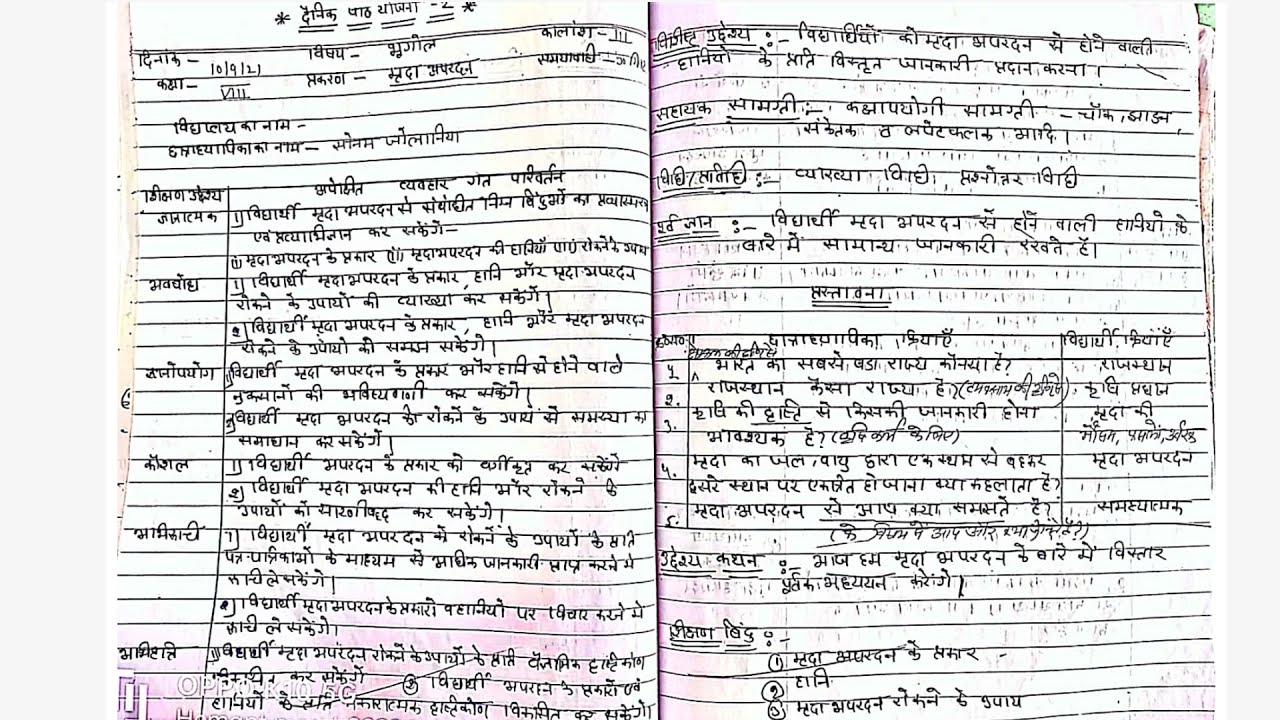 * दैनिक पाठ योजना - 2 *
दिनांक - 10/9/21 विषय - भूगोल कालांश - III
कक्षा - VIII प्रकरण - मृदा अपरदन समयावधि -
विद्यालय का नाम -
छात्राध्यापिका का नाम - सोनम जोलानिया
शिक्षण उद्देश्य अपेक्षित व्यवहार गत परिवर्तन
ज्ञानात्मक 1) विद्यार्थी मृदा अपरदन से संबंधित निम्न बिंदुओं का प्रत्यास्मरण
एवं प्रत्याभिज्ञान कर सकेंगे -
(i) मृदा अपरदन के प्रकार (ii) मृदा अपरदन की हानियाँ (iii) रोकने के उपाय
अवबोध 1) विद्यार्थी मृदा अपरदन के प्रकार, हानि और मृदा अपरदन
रोकने के उपायों की व्याख्या कर सकेंगे।
2) विद्यार्थी मृदा अपरदन के प्रकार, हानि और मृदा अपरदन
रोकने के उपायो को समझ सकेंगे।
ज्ञानोपयोग 1) विद्यार्थी मृदा अपरदन के प्रकार और हानि से होने वाले
नुकसानों की भविष्यवाणी कर सकेंगे।
2) विद्यार्थी मृदा अपरदन के रोकने के उपाय से समस्या का
समाधान कर सकेंगे।
कौशल 1) विद्यार्थी अपरदन के प्रकार को वर्गीकृत कर सकेंगे
2) विद्यार्थी मृदा अपरदन की हानि और रोकने के
उपायों को सारणीबद्ध कर सकेंगे।
अभिरूचि 1) विद्यार्थी मृदा अपरदन को रोकने के उपायों के प्रति
पत्र पत्रिकाओं के माध्यम से अधिक जानकारी प्राप्त करने में
रूचि ले सकेंगे।
2) विद्यार्थी मृदा अपरदन के प्रकारो व हानियों पर विचार करने में
रूचि ले सकेंगे।
अभिवृत्ति 1) विद्यार्थी मृदा अपरदन रोकने के उपायों के प्रति वैज्ञानिक दृष्टिकोण
विकसित कर सकेंगे 2) विद्यार्थी अपरदन के प्रकारों एवं
हानियों के प्रति सकारात्मक दृष्टिकोण विकसित कर सकेंगे।
OPPO K10 5G
विशिष्ट उद्देश्य :- विद्यार्थियों को मृदा अपरदन से होने वाली
हानियो के प्रति विस्तृत जानकारी प्रदान करना।
सहायक सामग्री :- कक्षोपयोगी सामग्री - चॉक, झाडन,
संकेतक व लपेटफलक आदि।
विधि/प्राविधि :- व्याख्या विधि, प्रश्नोत्तर विधि
पूर्व ज्ञान :- विद्यार्थी मृदा अपरदन से होने वाली हानियो के
बारे में सामान्य जानकारी रखते है।
प्रस्तावना
छात्राध्यापिका क्रियाएँ विद्यार्थी क्रियाएँ
1. भारत का सबसे बडा राज्य कौनसा है? राजस्थान
2. राजस्थान कैसा राज्य है? कृषि प्रधान
3. कृषि की दृष्टि से किसकी जानकारी होना मृदा की
आवश्यक है? (कृषि कार्य के लिए)
4. मृदा का जल, वायु द्वारा एक स्थान से बहकर मृदा अपरदन
दूसरे स्थान पर एकत्रित हो जाना क्या कहलाता है?
5. मृदा अपरदन से आप क्या समझते है? समस्यात्मक
उद्देश्य कथन :- आज हम मृदा अपरदन के बारे में विस्तार
पूर्वक अध्ययन करेंगे।
शिक्षण बिंदु :-
(1) मृदा अपरदन के प्रकार -
(2) हानि
(3) मृदा अपरदन रोकने के उपाय